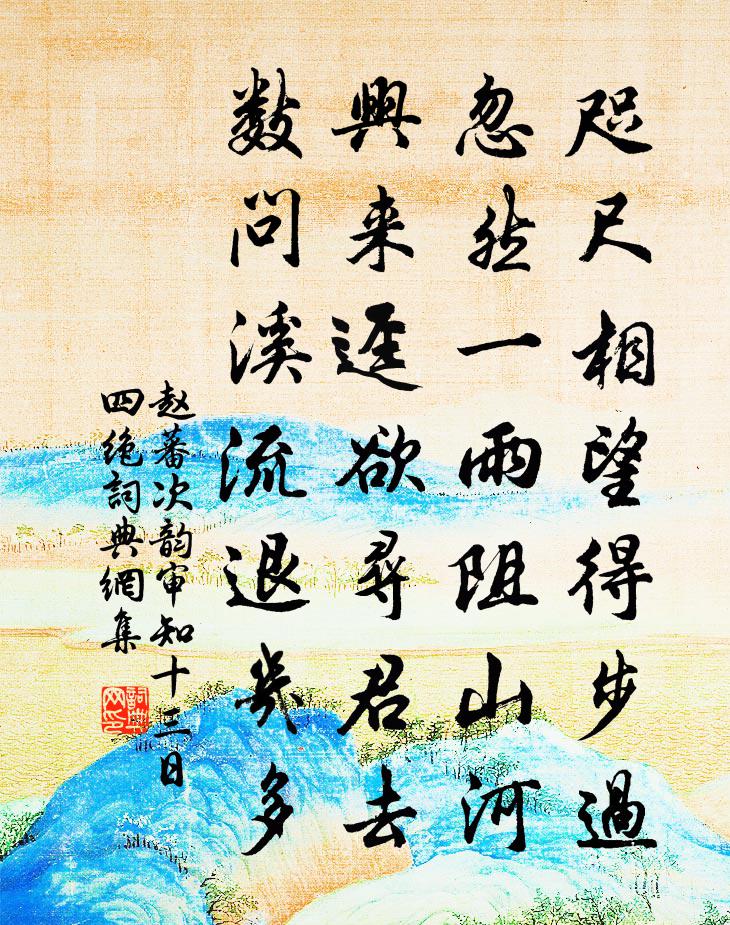 咫尺相望得步過
忽然一雨阻山河
興来遅欲尋君去
数問溪流退幾多
赵蕃次韵审知十三日
四絶詞典網集